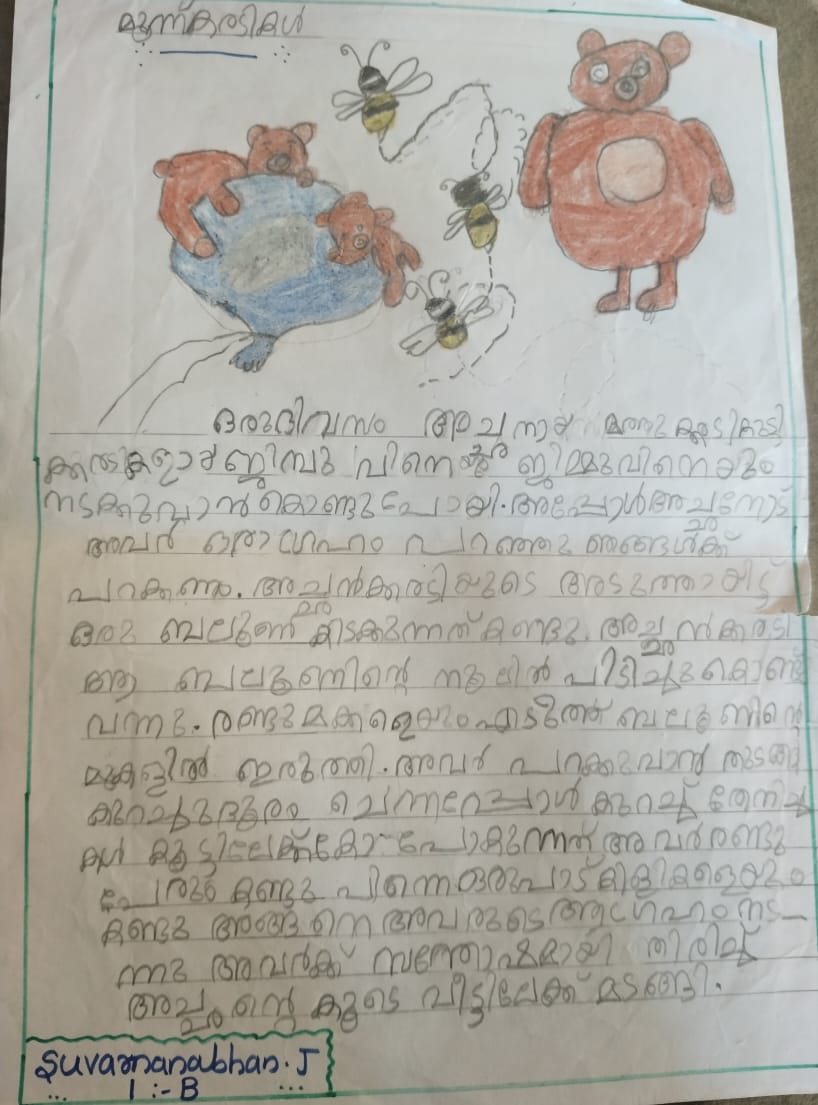 മൂന്ന് കരടികൾ
ഒരു ദിവസം അച്ചനായ കരടികുട്ടി
കരടികളായ ജിമ്പു വിനെയും ജിമ്മുവിനെയും
നടക്കുവാൻ കൊണ്ടുപോയി. അപ്പോൾ അച്ചനോട്
അവർ ഒരാഗ്രഹം പറഞ്ഞു ഞങ്ങൾക്ക്
പറക്കണം. അച്ചൻകരടിയുടെ അടുത്തായിട്ട്
ഒരു ബലൂൺ കിടക്കുന്നത് കണ്ടു. അച്ചൻകരടി
ആ ബലൂണിന്റെ നൂലിൽ പിടിച്ചു കൊണ്ട്
വന്നു. രണ്ടു മക്കളെയും എടുത്ത് ബലൂണിന്റെ
മുകളിൽ ഇരുത്തി. അവർ പറക്കുവാൻ തുടങ്ങി
കുറച്ചു ദൂരം ചെന്നപ്പോൾ കുറച്ച് തേനീച്ച
കൾ കൂട്ടിലേക്ക് പോകുന്നത് അവർ രണ്ടു
പേരും കണ്ടു പിന്നെ ഒരുപാട് കിളികളെയും
കണ്ടു അങ്ങനെ അവരുടെ ആഗ്രഹം നട_
ന്നു അവർക്ക് സന്തോഷമായി തിരിച്ച്
അച്ചന്റെ കൂടെ വീട്ടിലേക്ക് മടങ്ങി.
Suvarnanabhan. J
1 :- B